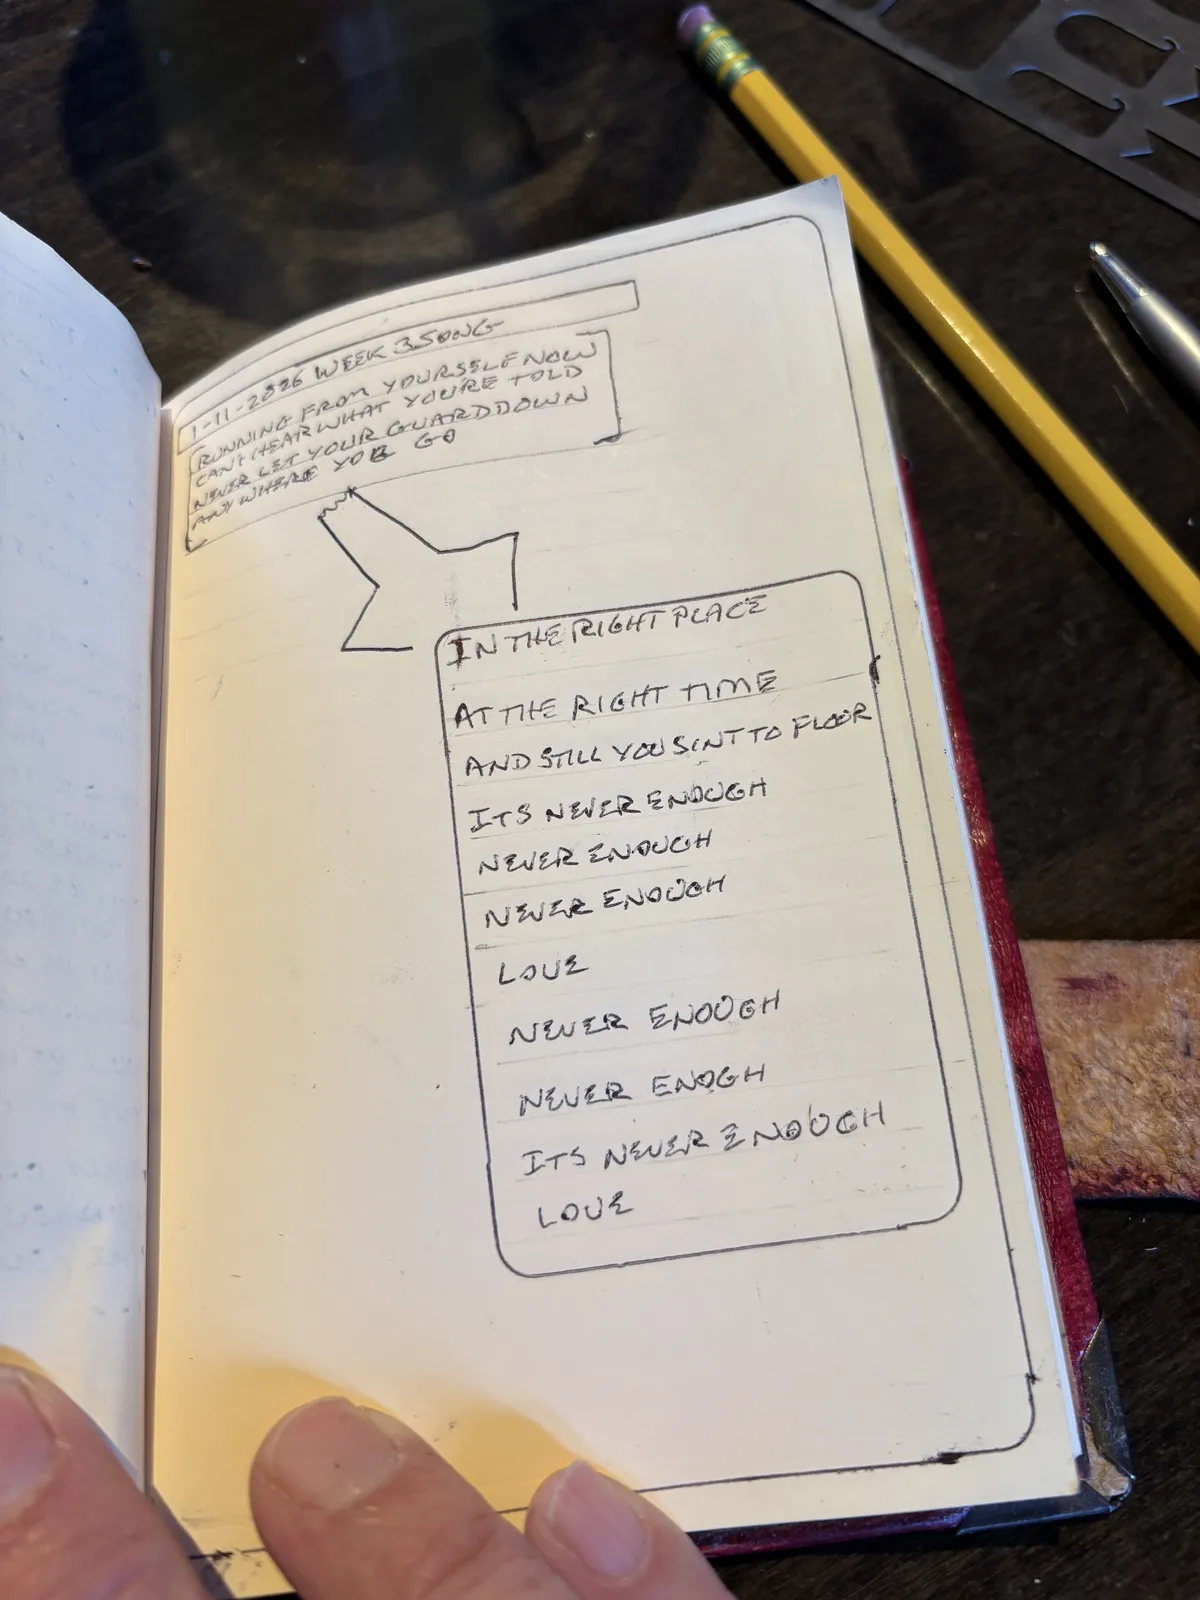 1-11-2026 WEEK 3 SONG
RUNNING FROM YOURSELF NOW
CANT HEAR WHAT YOU'RE TOLD
NEVER LET YOUR GUARD DOWN
ANYWHERE YOU GO
IN THE RIGHT PLACE
AT THE RIGHT TIME
AND STILL YOU SINT TO FLOOR
ITS NEVER ENOUGH
NEVER ENOUGH
NEVER ENOUGH
LOVE
NEVER ENOUGH
NEVER ENOGH
ITS NEVER ENOUGH
LOVE